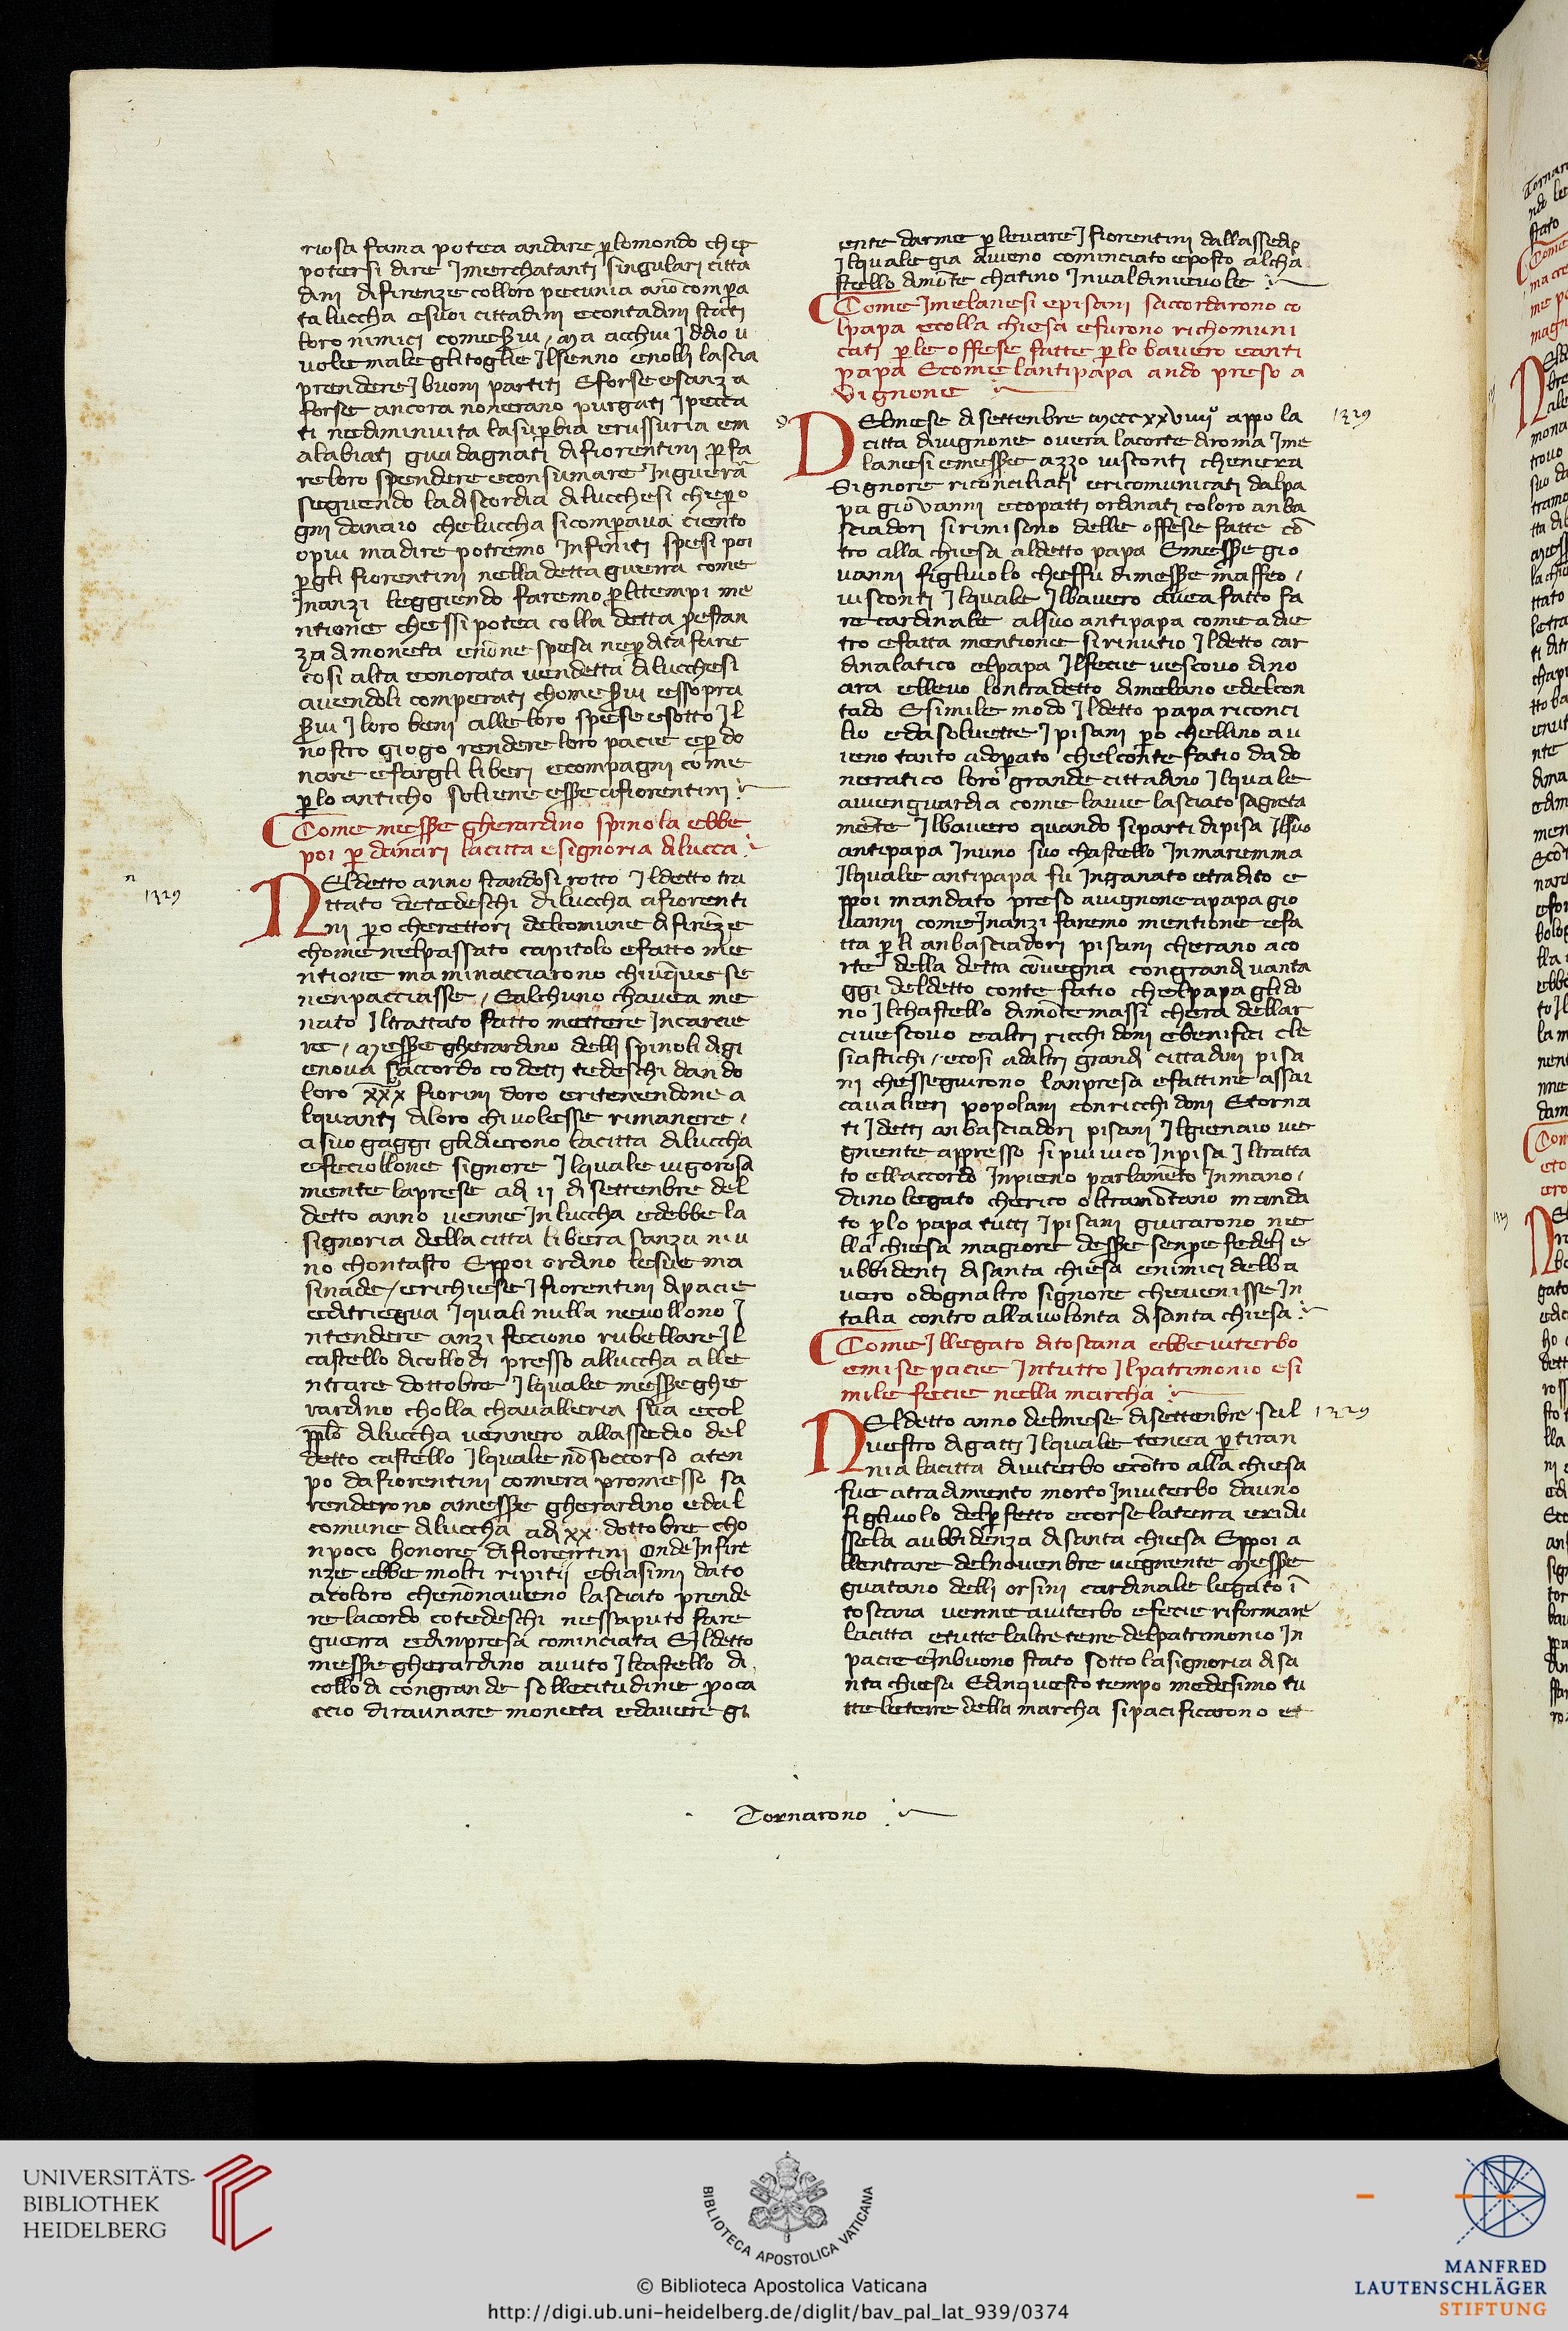 riosa fama potea andare p̱ lomondo che p̱
potersi dire Jmerchatanti singulari citta
dini di firenze colloro pecunia ano comp̱a
ta luccha esuoi cittadini econtadini stati
loro nimici come s̱ui / Ma acchui Jddio u
uole male gli toglie Jlsenno enolli lascia
prendere J buoni partiti E forse esanza
forse ancora nonerano purgati Jpecca
ti nediminuita la sup̱bia erussuria em
alabiati guadagnati difiorentini p̱ fa
re loro spendere econsumare Inguerā
seguendo la discordia dilucchesi che p̱o
gni danaio cheluccha sicomp̱aua ciento
opiu madire potremo Infiniti spesi poi
p̱gli fiorentini nella detta guerra come
Jnanzi leggiendo faremo p̱lltempi me
ntione chessi potea colla detta pestan
za dimoneta enūne spesa nep̱dita fare
cosi alta eonorata uendetta dilucchesi
auendoli comperati chome s̱ui essopra
s̱ui J loro beni alle loro spese esotto Jl
nostro giogo rendere loro pacie ep̱ do
nare efargli liberi ecompagni come
p̱ lo anticho soliene ess̱e afiorentini
Come mess̱e gherardino spinola ebbe
poi p̱ danari lacitta esignoria dilucca
1329
NEldetto anno standosi rotto Jldetto tra
ttato detedeschi diluccha afiorenti
ni p̱o cherettori delcomune difirēze
chome nelpassato capitolo efatto me
ntione ma minacciarono chiūque se
nenpacciasse / Ealchuno chauea me
nato Jltrattato fatto mettere Incarcie
re / Mess̱e gherardino delli spinoli digi
enoua saccordo co detti tedeschi dando
loro xxx fiorini doro eritenendone a
lquanti diloro chi uolesse rimanere /
a suo gaggi glidierono lacitta diluccha
efeciollone signore Jlquale uigorosa
mente laprese adi ij di settenbre del
detto anno uenne Inluccha edebbe la
signoria della citta libera sanza niu
no chontasto Eppoi ordino lesue ma
sinade / erichiese J fiorentini dipacie
editriegua Jquali nulla neuollono J
ntendere anzi feciono rubellare Jl
castello dicollodi presso alluccha alle
ntrare dottobre Jlquale mess̱e ghe
rardino cholla chaualleria sua ecol
pp̱lo diluccha uennero allassedio del
detto castello Jlquale nō soccorso aten
po dafiorentini comera promesso sa
renderono amess̱e gherardino edal
comune diluccha adi xx dottobre cho
npoco honore difiorentini Onde Infire
nze ebbe molti ripitij ebiasimi dato
acoloro chenōnaueno lasciato prende
re lacordo cotedeschi nessaputo fare
guerra edinpresa cominciata E Jldetto
mess̱e gherardino auuto Jlcastello di
collodi congrande sollecitudine p̱occa
ccio diraunare moneta edauere gi
ente darme p̱ leuare J fiorentini dallassedio
Jlquale gia aueno cominciato eposto alcha
stello dimōte chatino Inualdinieuole
Come Jmelanesi episani saccordarono co
lpapa ecolla chiesa efurono richomuni
cati p̱le offese fatte p̱lo bauero eanti
papa Ecome lantipapa ando preso a
Vignone
1329
DElmese di settenbre Mccc xxVIIIIº appo la
citta diuignone ouera lacorte diroma Jme
lanesi emess̱e azzo uisconti chenera
Signore riconciliati ericomunicati dalpa
pa giouanni ecopatti ordinati coloro anba
sciadori sirimisono delle offese fatte cō
tro alla chiesa aldetto papa Emess̱e gio
uanni figliuolo cheffu dimess̱e maffeo /
uisconti Jlquale Jlbauero auea fatto fa
re cardinale alsuo antipapa come adie
tro efatta mentione sirinutio Jldetto car
dinalatico elpapa Jlfecie uescouo dino
ara elleuo lontradetto dimelano edelcon
tado Esimile modo Jldetto papa riconci
lio edasoluette Jpisani p̱o chellino au
ieno tanto adop̱ato chelconte fatio dado
neratico loro grande cittadino Jlquale
auienguardia come lauie lasciato sagreta
mēte Jlbauero quando siparti dipisa Jlsuo
antipapa Inuno suo chastello Inmaremma
Jlquale antipapa fu Inganato etradito e
ppoi mandato preso auignone apapa gio
uanni come Jnanzi faremo mentione efa
tta p̱ li anbasciadori pisani cherano aco
rte della detta cōuegna congrandi uanta
ggi deldetto conte fatio chelpapa glido
no Jlchastello dimōte massi chera dellar
ciuescouo ealtri ricchi doni ebenifici cle
siastichi / ecosi adaltri grandi cittadini pisa
ni chesseguirono lanpresa efattine assai
caualieri popolani conricchi doni Etorna
ti J detti anbasciadori pisani Jlgienaio ue
gnente appresso si piuuico Inpisa Jltratta
to ellaccordo Inpieno parlamēto Inmano /
duno legato cherico oltramōtano manda
to p̱lo papa tutti Jpisani giurarono ne
lla chiesa magiore dess̱e senp̱e fedeli e
ubbidenti disanta chiesa enimici delba
uero odognaltro signore cheuenisse In
talia contro allauolonta disanta chiesa
Come Jllegato ditoscana ebbe uiterbo
emise pacie Intutto Jlpatrimonio esi
mile fecie nella marcha
1329
NEldetto anno delmese disettenbre sal
uestro digatti Jlquale tenea p̱ tiran
nia lacitta diuiterbo ecōtro alla chiesa
fue atradimento morto Iniuterbo dauno
figliuolo delp̱fetto ecorse laterra eridu
ssela aubbidenza disanta chiesa Eppoi a
llentrare delnouenbre uegnente Mess̱e
guatano delli orsini cardinale legato ī
toscana uenne auiterbo efecie riformare
lacitta etutte laltre terre delpatrimonio In
pacie eInbuono stato sotto lasignoria disa
nta chiesa Edinquesto tempo medesimo tu
tte leterre della marcha sipacificarono et
Tornarono
UNIVERSITÄTS-
BIBLIOTHEK
HEIDELBERG
BIBLIOTECA APOSTOLICA VATICANA
MANFRED
LAUTENSCHLÄGER
STIFTUNG
© Biblioteca Apostolica Vaticana
http://digi.ub.uni-heidelberg.de/diglit/bav_pal_lat_939/0374